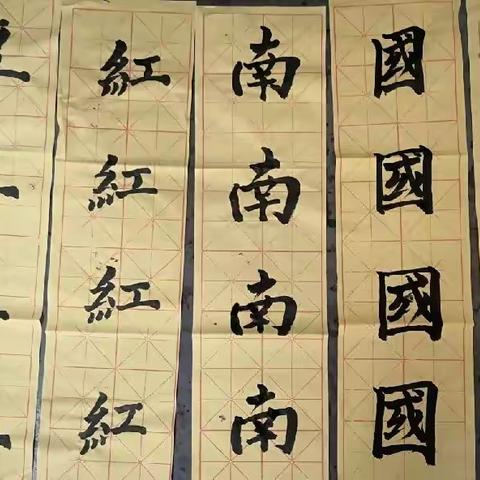 國國國國
南南南南
紅紅紅紅